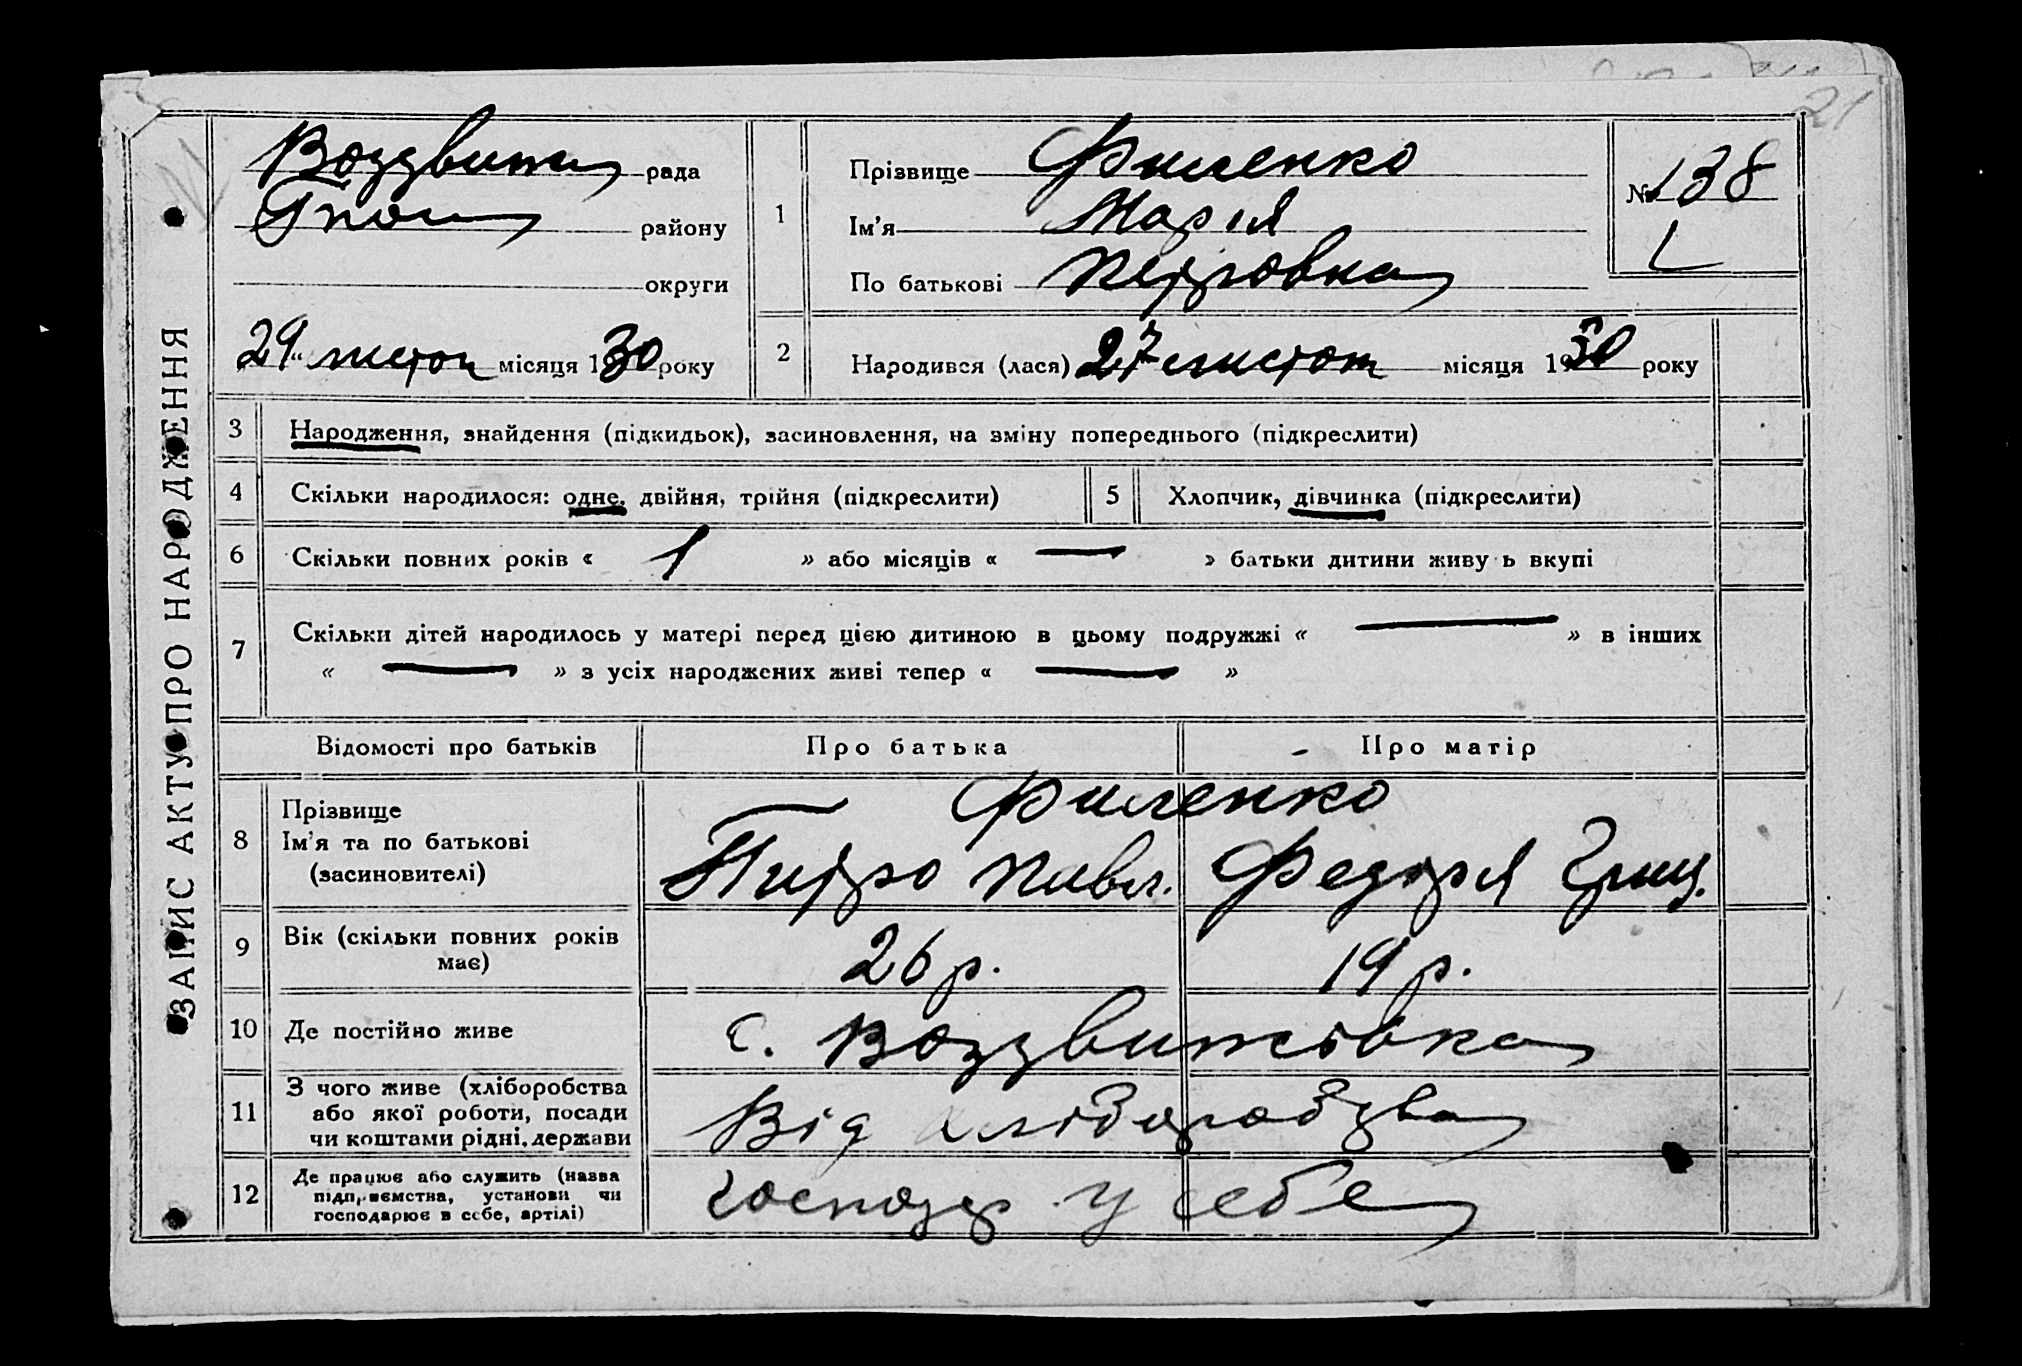 21
ЗАПИС АКТУ ПРО НАРОДЖЕННЯ
Воздвиж рада
району
округи
29 листоп місяця 1930 року
1
Прізвище Филенко
Ім'я Марія
По батькові Петровна
№ 138
2
Народився (лася) 27 листоп місяця 1930 року
3 Народження, знайдення (підкидьок), засиновлення, на зміну попереднього (підкреслити)
4 Скільки народилося: одне, двійня, трійня (підкреслити) 5 Хлопчик, дівчинка (підкреслити)
6 Скільки повних років « 1 » або місяців « — » батьки дитини живу ь вкупі
7 Скільки дітей народилось у матері перед цією дитиною в цьому подружжі « — » в інших
« — » з усіх народжених живі тепер « — »
Відомості про батьків Про батька Про матір
8 Прізвище
Ім'я та по батькові
(засиновителі)
Филенко
Питро Павл. Федора Гриц.
9 Вік (скільки повних років
має)
26 р. 19 р.
10 Де постійно живе с. Воздвижівка
11 З чого живе (хліборобства
або якої роботи, посади
чи коштами рідні, держави
Від хліборобства
12 Де працює або служить (назва
підприємства, установи чи
господарює в себе, артілі)
господ у себе